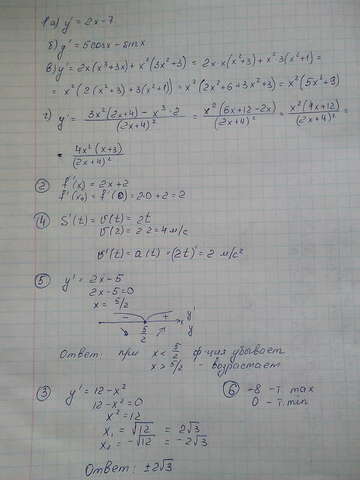 1. а) y' = 2x - 7
б) y' = 5cosx - sinx
в) y' = 2x(x³+3x) + x²(3x²+3) = 2x·x(x²+3) + x²·3(x²+1) =
= x²(2(x²+3) + 3(x²+1)) = x²(2x²+6+3x²+3) = x²(5x²+9)
г) y' = 3x²(2x+4) - x³·2 / (2x+4)² = x²(6x+12-2x) / (2x+4)² = x²(4x+12) / (2x+4)² =
= 4x²(x+3) / (2x+4)²
② f'(x) = 2x+2
f'(x₀) = f'(0) = 2·0+2 = 2
④ S'(t) = v(t) = 2t
v(2) = 2·2 = 4 м/с
v'(t) = a(t) = (2t)' = 2 м/с²
⑤ y' = 2x - 5
2x - 5 = 0
x = 5/2
- + y'
5/2 y
Ответ: при x < 5/2 ф-ция убывает
x > 5/2 - возрастает
③ y' = 12 - x²
12 - x² = 0
x² = 12
x₁ = √12 = 2√3
x₂ = -√12 = -2√3
Ответ: ±2√3
⑥ -8 - т. max
0 - т. min